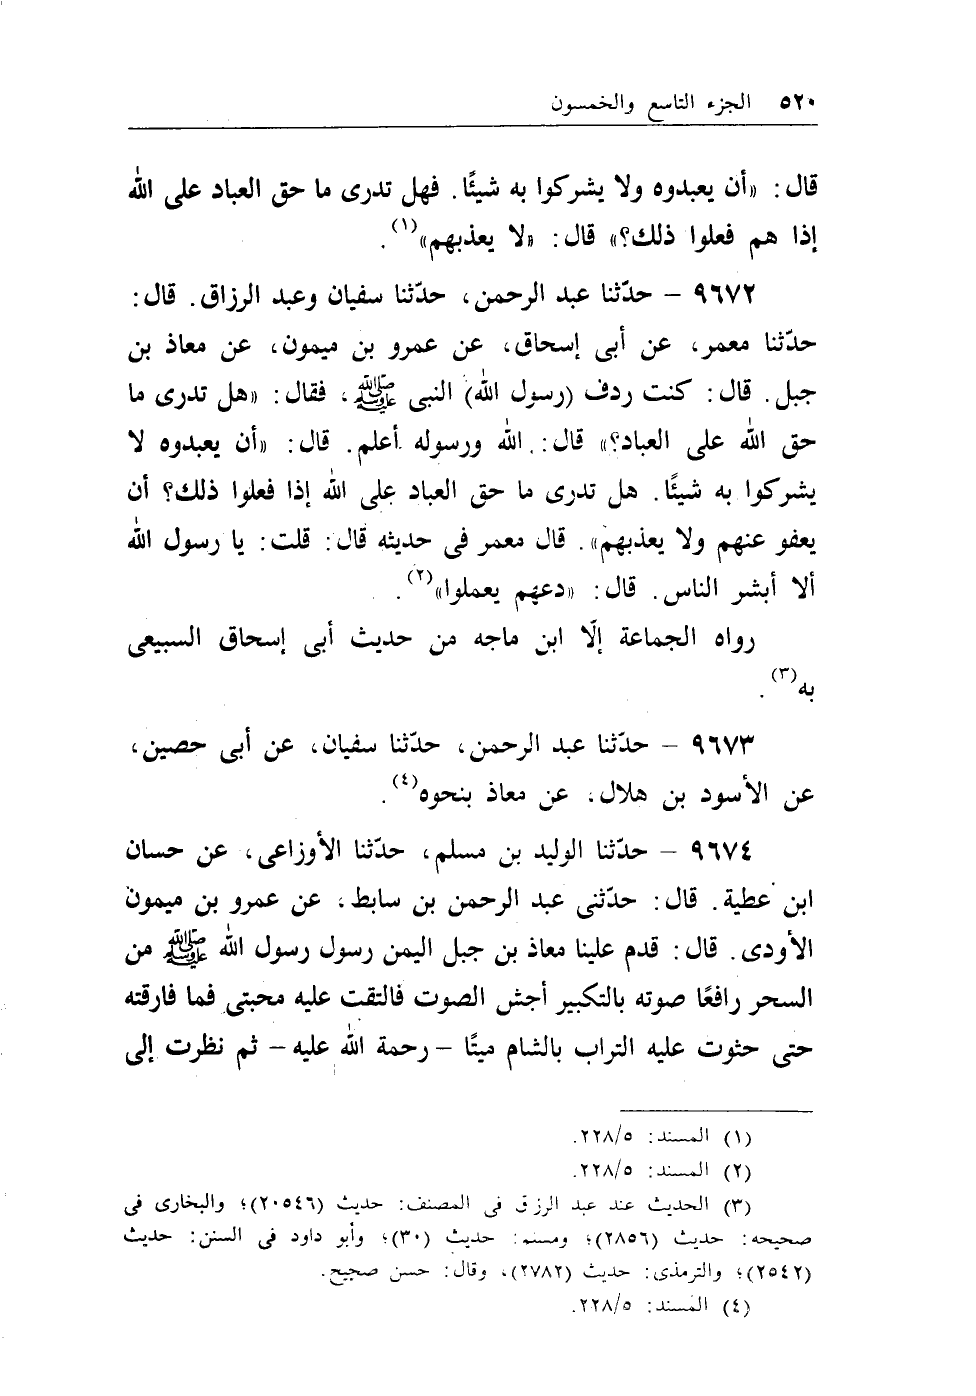 ٥٢٠ الجزء التاسع والخمسون
قال: «أن يعبدوه ولا يشركوا به شيئًا. فهل تدرى ما حق العباد على الله
إذا هم فعلوا ذلك؟» قال: «لا يعذبهم»(١).
٩٦٧٢ - حدّثنا عبد الرحمن، حدّثنا سفيان وعبد الرزاق. قال:
حدّثنا معمر، عن أبى إسحاق، عن عمرو بن ميمون، عن معاذ بن
جبل. قال: كنت ردف (رسول الله) النبى ﷺ، فقال: «هل تدرى ما
حق الله على العباد؟» قال: الله ورسوله أعلم. قال: «أن يعبدوه لا
يشركوا به شيئًا. هل تدرى ما حق العباد على الله إذا فعلوا ذلك؟ أن
يعفو عنهم ولا يعذبهم». قال معمر فى حديثه قال: قلت: يا رسول الله
ألا أبشر الناس. قال: «دعهم يعملوا»(٢).
رواه الجماعة إلّا ابن ماجه من حديث أبى إسحاق السبيعى
به(٣).
٩٦٧٣ - حدّثنا عبد الرحمن، حدّثنا سفيان، عن أبى حصين،
عن الأسود بن هلال، عن معاذ بنحوه(٤).
٩٦٧٤ - حدّثنا الوليد بن مسلم، حدّثنا الأوزاعى، عن حسان
ابن عطية. قال: حدّثنى عبد الرحمن بن سابط، عن عمرو بن ميمون
الأودى. قال: قدم علينا معاذ بن جبل اليمن رسول رسول الله ﷺ من
السحر رافعًا صوته بالتكبير أجش الصوت فالتقت عليه محبتى فما فارقته
حتى حثوت عليه التراب بالشام ميتًا - رحمة الله عليه - ثم نظرت إلى
(١) المسند: ٢٢٨/٥.
(٢) المسند: ٢٢٨/٥.
(٣) الحديث عند عبد الرزق فى المصنف: حديث (٢٠٥٤٦)؛ والبخارى فى
صحيحه: حديث (٢٨٥٦)؛ ومسلم: حديث (٣٠)؛ وأبو داود فى السنن: حديث
(٢٥٤٢)؛ والترمذى: حديث (٢٧٨٢)، وقال: حسن صحيح.
(٤) المسند: ٢٢٨/٥.